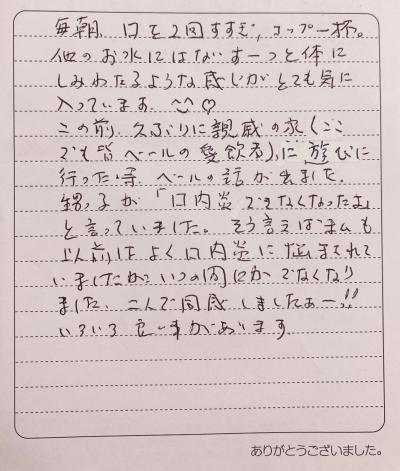 毎朝、口を2回すすぎ、コップ一杯。
他のお水にはないすーっと体に
しみわたるような感じがとても気に
入っています ^^♡
この前、久ぶりに親戚の家(ここ
でも皆ベールの愛飲者)に遊びに
行った時、ベールの話が出ました。
甥っ子が「口内炎できなくなったよ」
と言っていました。そう言えば も
以前はよく口内炎に悩まされて
いましたが いつの間にかでなくなり
ました、 同感しましたぁー!!
いろいろ良い事があります。
ありがとうございました。